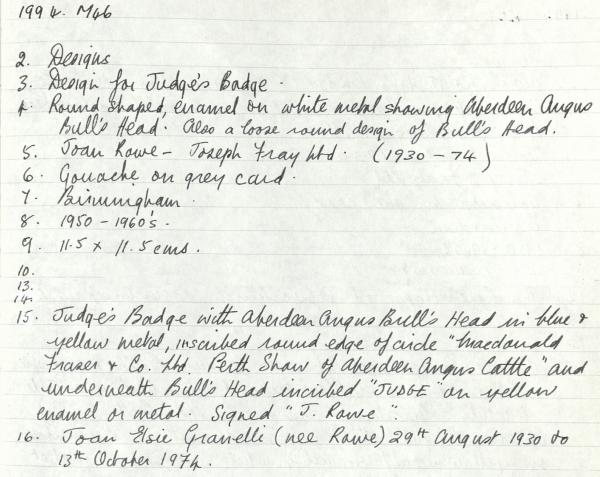 1994. M46
2. Designs
3. Design for Judge's Badge.
4. Round shaped, enamel on white metal showing Aberdeen Angus
Bull's Head. Also a loose round design of Bull's Head.
5. Joan Rowe - Joseph Fray Ltd. (1930 - 74)
6. Gouache on grey card.
7. Birmingham.
8. 1950 - 1960's.
9. 11.5 x 11.5 cms.
10.
13.
14.
15. Judge's Badge with Aberdeen Angus Bull's Head in blue &
yellow metal, inscribed round edge of circle "Macdonald
Fraser & Co. Ltd. Perth Show of Aberdeen Angus Cattle" and
underneath Bull's Head incribed "JUDGE" on yellow
enamel or metal. Signed "J. Rowe".
16. Joan Elsie Granelli (nee Rowe) 29th August 1930 to
13th October 1974.